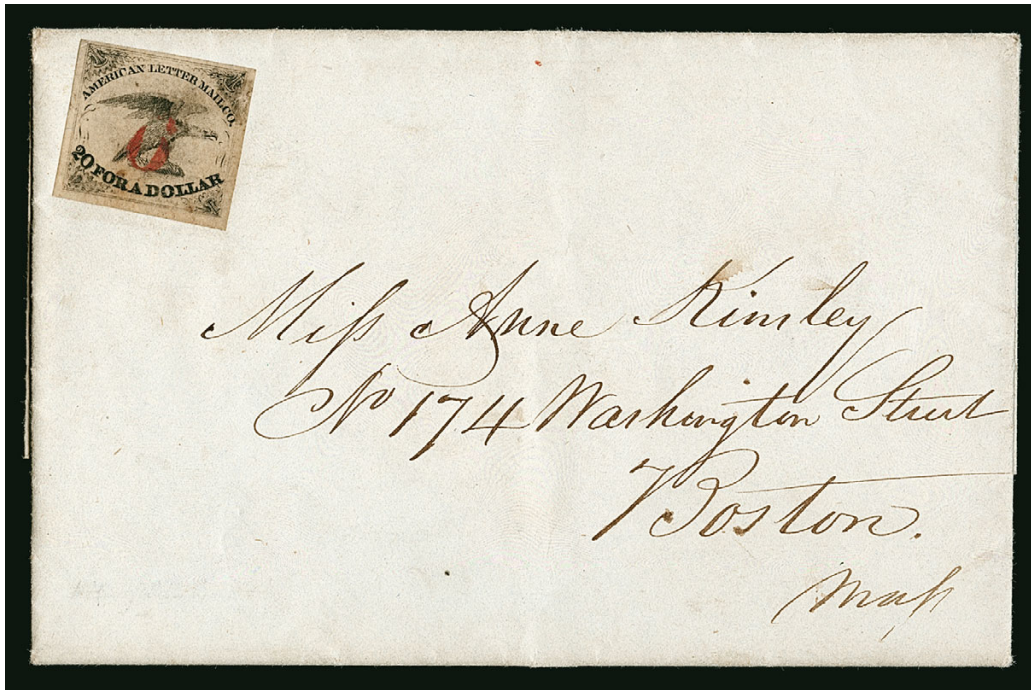 AMERICAN LETTER MAIL CO.
20 FOR A DOLLAR
Miſs Anne Kinsley
No 174 Washington Street
Boston.
Maſs